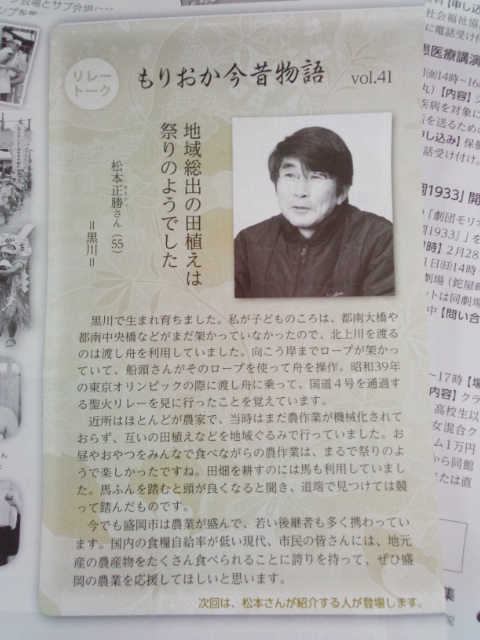 リレー
トーク
もりおか今昔物語 vol.41
地域総出の田植えは
祭りのようでした
松本正勝さん(55)
=黒川=
黒川で生まれ育ちました。私が子どものころは、都南大橋や
都南中央橋などがまだ架かっていなかったので、北上川を渡る
のは渡し舟を利用していました。向こう岸までロープが架かっ
ていて、船頭さんがそのロープを使って舟を操作。昭和39年
の東京オリンピックの際に渡し舟に乗って、国道4号を通過す
る聖火リレーを見に行ったことを覚えています。
近所はほとんどが農家で、当時はまだ農作業が機械化されて
おらず、互いの田植えなどを地域ぐるみで行っていました。お
昼やおやつをみんなで食べながらの農作業は、まるで祭りのよ
うで楽しかったですね。田畑を耕すのには馬も利用していまし
た。馬ふんを踏むと頭が良くなると聞き、道端で見つけては競
って踏んだものです。
今でも盛岡市は農業が盛んで、若い後継者も多く携わってい
ます。国内の食糧自給率が低い現代、市民の皆さんには、地元
産の農産物をたくさん食べられることに誇りを持って、ぜひ盛
岡の農業を応援してほしいと思います。
次回は、松本さんが紹介する人が登場します。
社会福祉協
に電話受け付
医療講演
14時~16
【内容】
疾病を対象に
を送るための
し込み】保健
話受け付け。
1933」開
「劇団モリオ
1933』」を
時】2月28
日㈰14時~
劇場(鉈屋町
ットは同劇場
中【問い合
~17時【場
内容】クラ
高校生以
女混合ク
ム1万円
から同館
または直
集